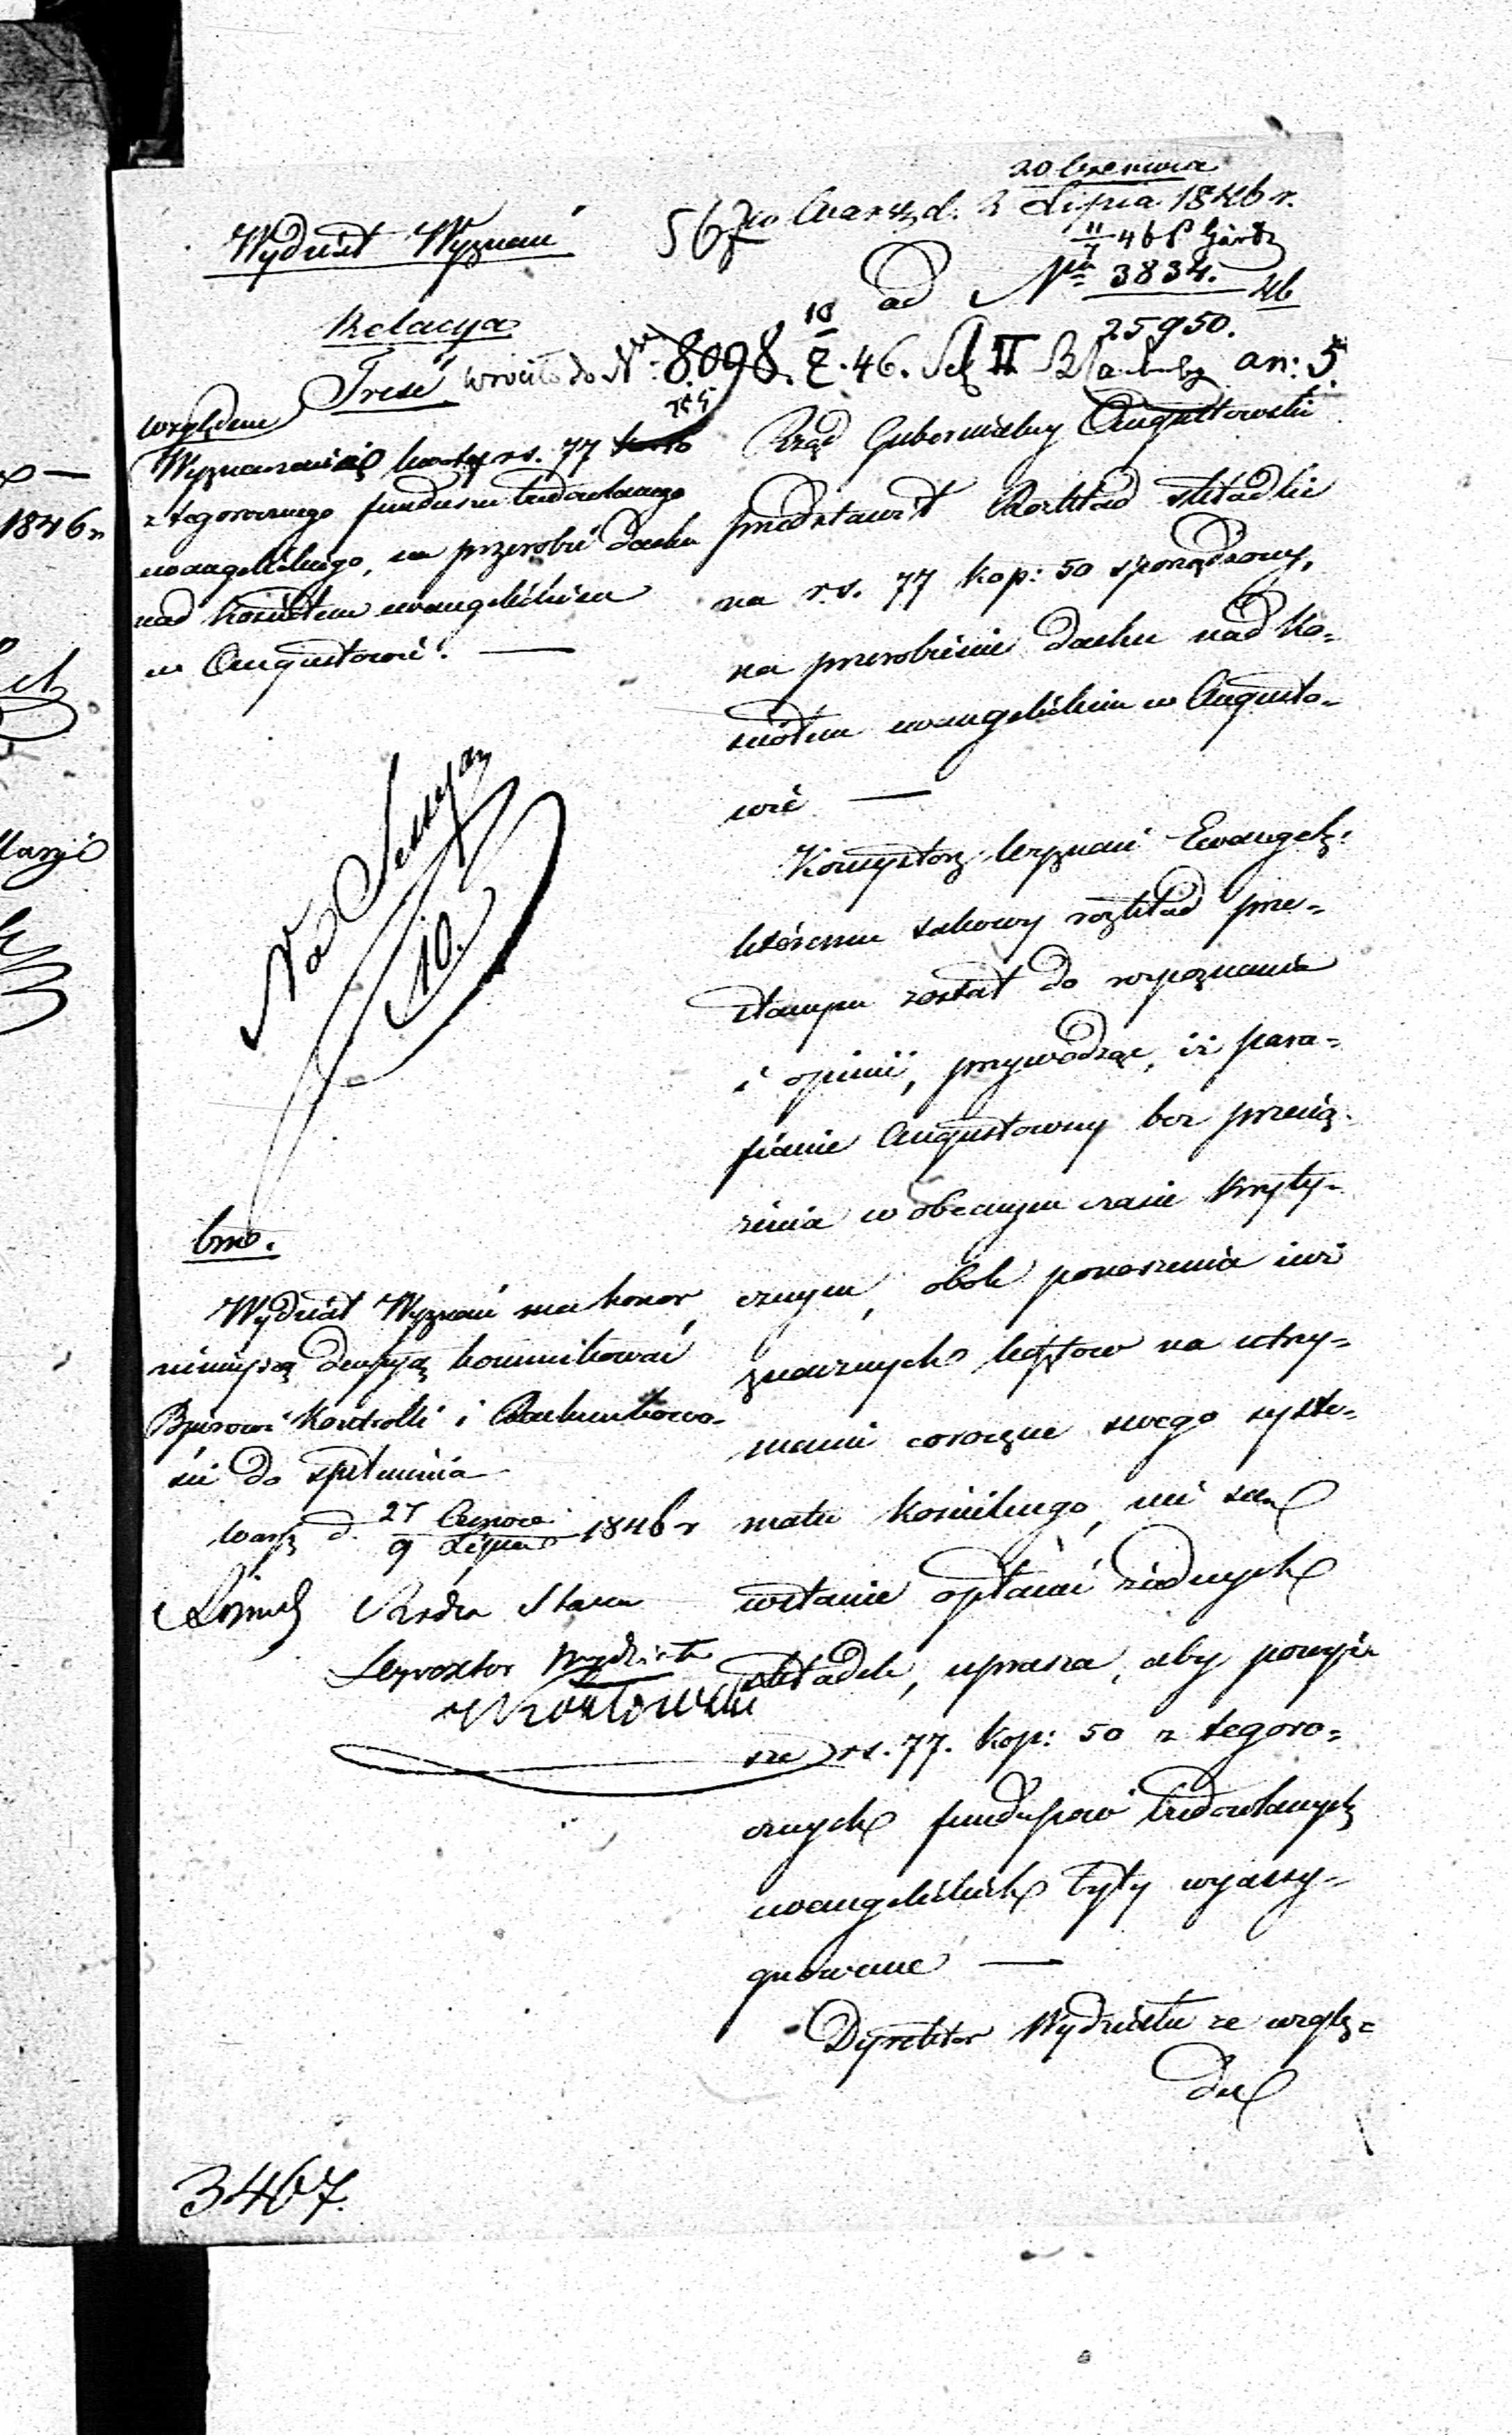 Wydział Wyznań
567 w Warsz. d. 20 Czerwca
2 Lipca 1846 r.
11/7 46 P
ad Nr 3834. 46
25950.
Relacya
Treść
wróciło do Nr: 8098. 46. II an: 5
względem
Wyznaczenia kwoty rs. 77
z tegorocznego funduszu budowlanego
ewangelickiego, na przerobie dachu
nad kościołem ewangelickiem
w Augustowie. —
Na Sessyą
10.
Rząd Gubernialny Augustowski
przedstawił Rozkład składki
na rs. 77 kop: 50 sporządzony,
na przerobienie dachu nad ko-
ściołem ewangelickim w Augusto-
wie —
Konsystorz Wyznań Ewangel:
któremu takowy rozkład prze-
słanym został do rozpoznania
i opinii, przywodząc, iż para-
fianie Augustowscy bez przecią-
żenia w obecnym czasie kryty-
cznym, obok ponoszenia już
znacznych kosztow na utrzy-
manie coroczne swego syste-
matu kościelnego, nie są
wstanie opłacać żadnych
składek, uprasza, aby powyż-
sze rs. 77. kop: 50 z tegoro-
cznych funduszow budowlanych
ewangelickich były wyassy-
gnowane —
Dyrektor Wydziału ze wzglę-
du
Wydział Wyznań ma honor
niniejszą decyzyą kommunikować
Bjurowi Kontrolli i Rachunkowo-
ści do spełnienia
Warsz d. 27 Czerwca
9 Lipca 1846 r
Radca Stanu
Dyrektor Wydziału
3467.
1846 r